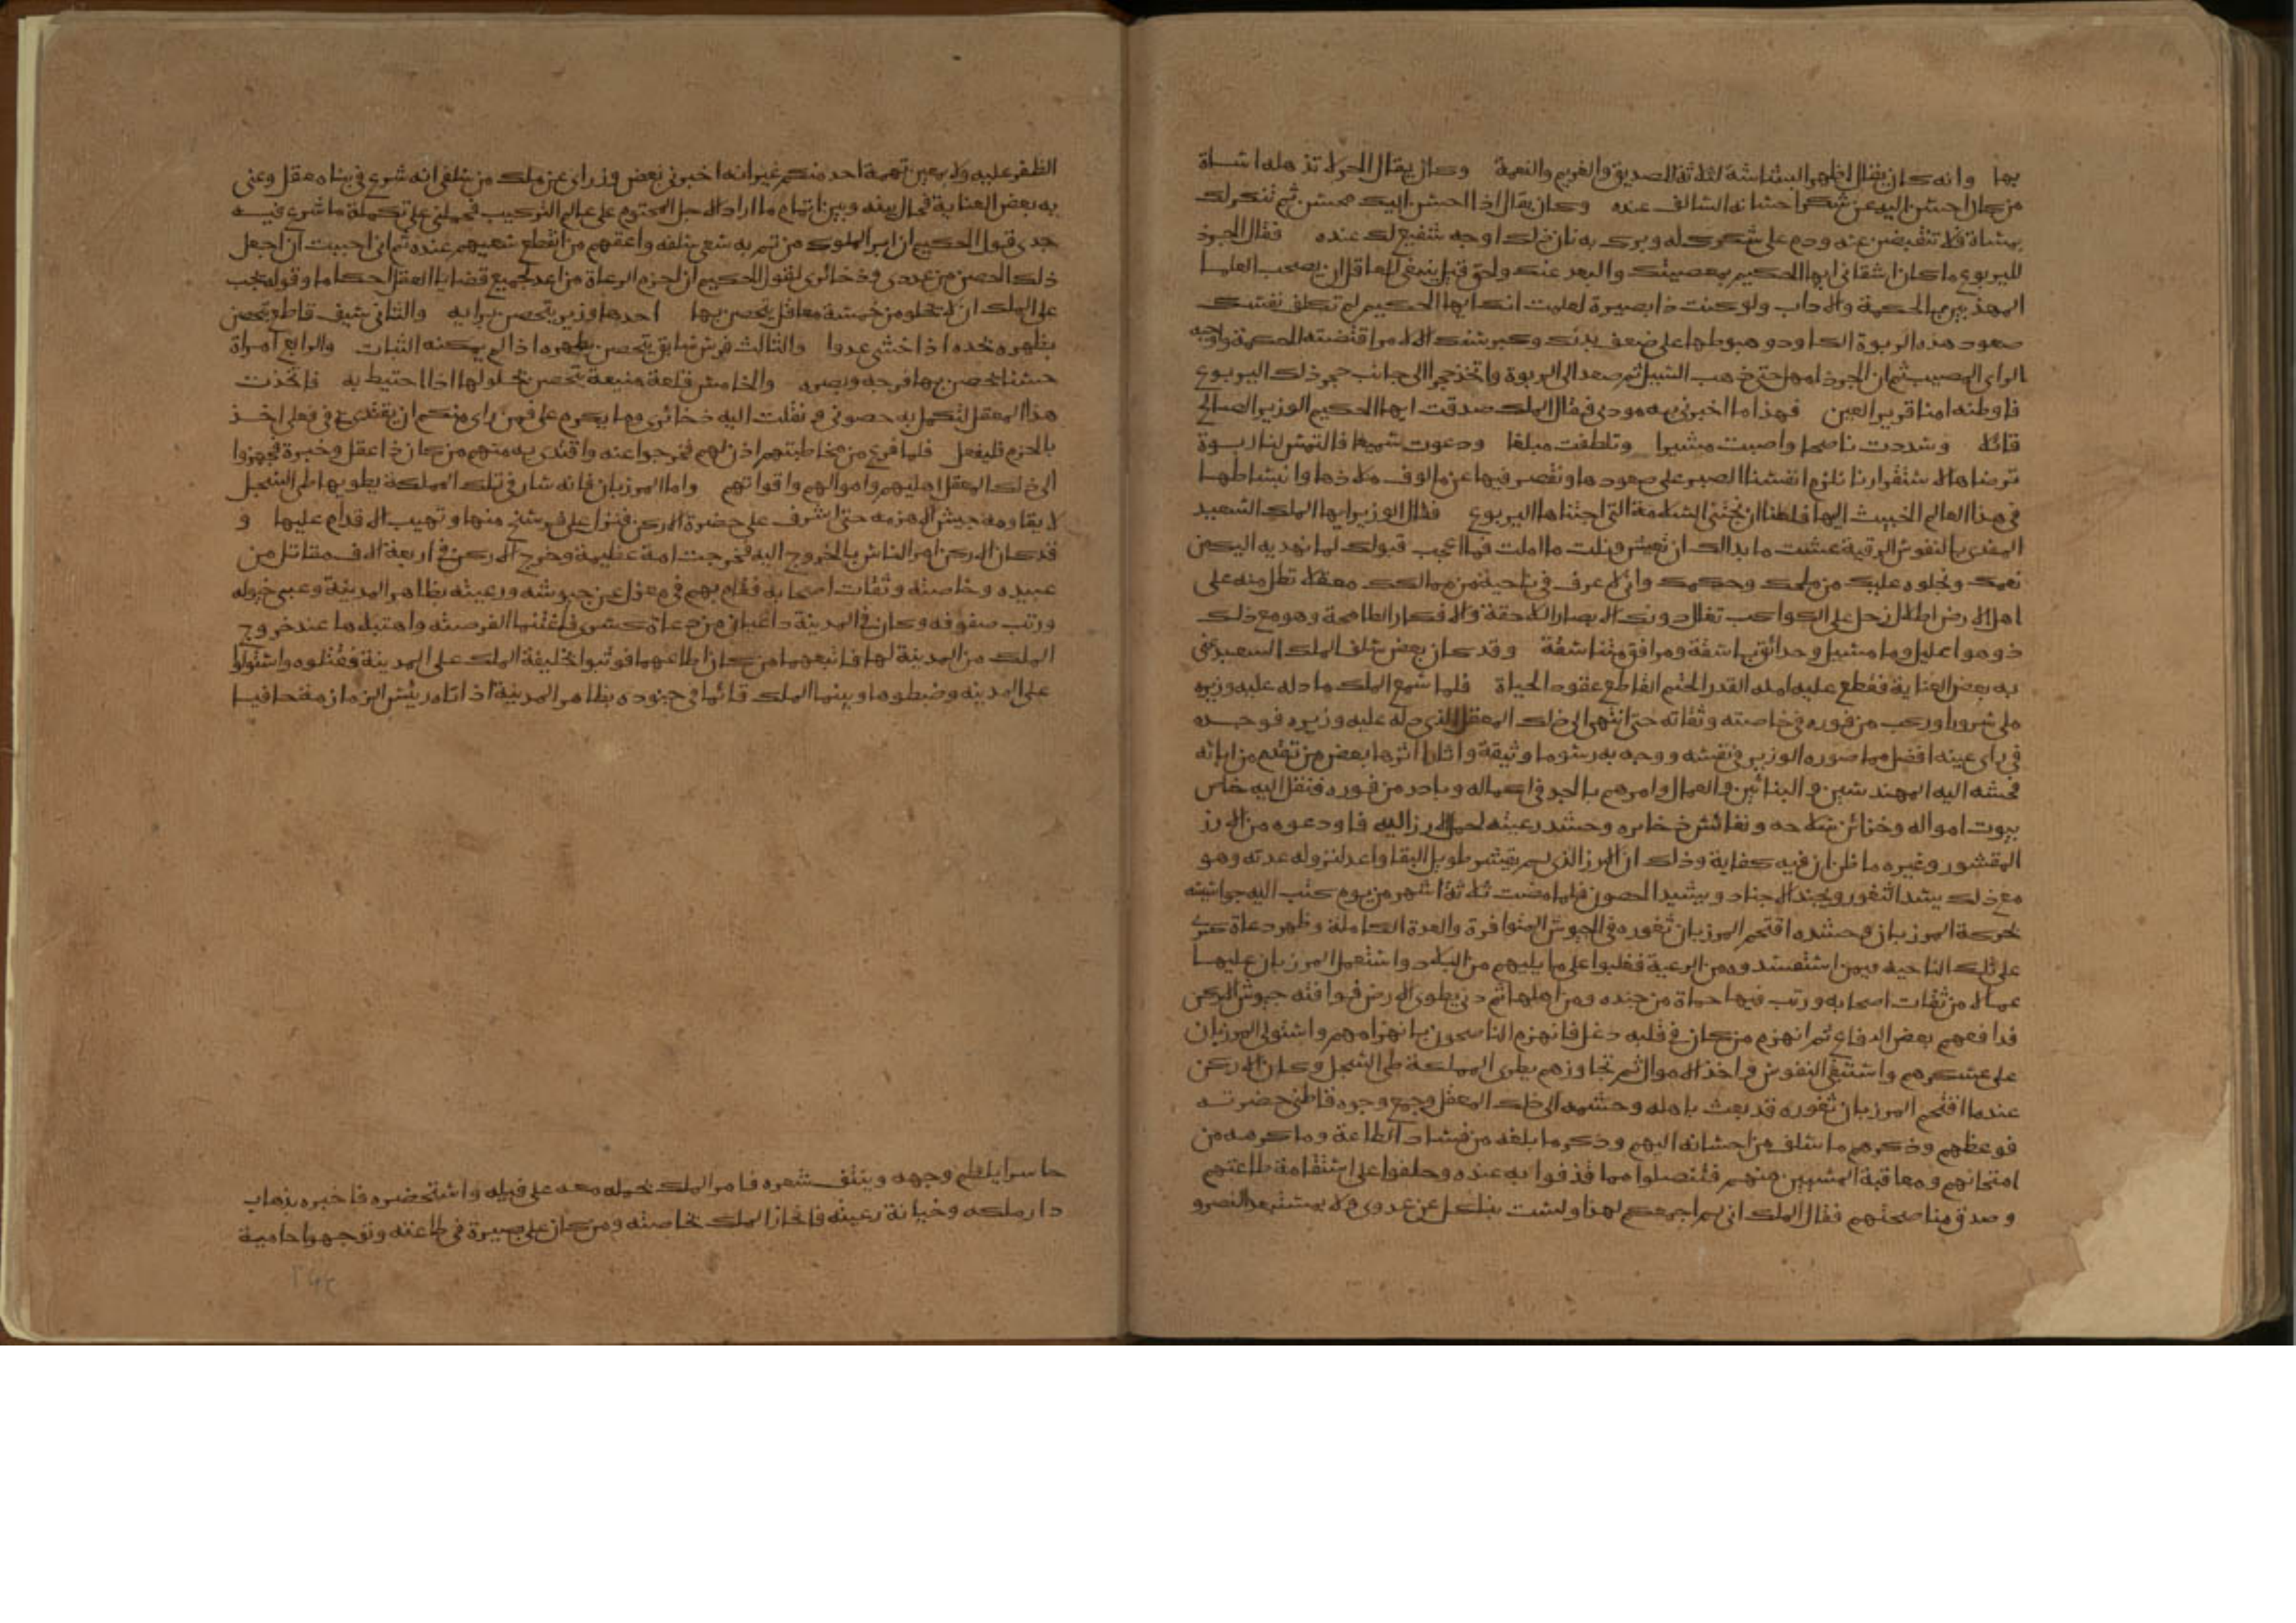 بها وانه كان يقال اظهر البشاشة لثلاثة الصديق والغريم والنعمة وكان يقال الحر لا تذهله اساة
من كان احسن اليه عن شكر احسانه السالف عنده وكان يقال اذا احسن اليك محسن ثم تنكر لك
بمساة فلا تنقبض عنه ودم على شكرك له وبرك به فان ذلك اوجه شفيع لك عنده فقال الجرذ
لليربوع ما كان اشقاني ايها الحكيم بمعصيتك والبعد عنك ولحق قيل ينبغي للعاقل ان يصحب العلما
المهذبين بالحكمة والاداب ولو كنت ذا بصيرة لعلمت انك ايها الحكيم لم تكلف نفسك
صعود هذه الربوة الكاود وهبوطها على ضعف بدنك وكبر سنك الا لامر اقتضته الحكمة واوجبه
الراي المصيب ثم ان الجرذ امهل حتى ذهب السيل ثم صعد الى الربوة واتخذ جحرا الى جانب جحر ذلك اليربوع
فاوطنه امنا قرير العين فهذا ما اخبرني به مودبي فقال الملك صدقت ايها الحكيم الوزير الصالح
قائلا وسددت ناصحا واصبت مشيرا وتلطفت مبلغا ودعوت سميعا فالتمس لنا ربوة
ترضاها لاستقرارنا نلزم انفسنا الصبر على صعودها ونقصر فيها عن مالوف ملاذها وانبساطها
في هذا العالم الخبيث اليها فلعلنا ان نجتني السلامة التي اجتناها اليربوع فقال الوزير ايها الملك السعيد
المفدى بالنفوس الرقية عشت ما بدا لك ان تعيش ونلت ما املت فما اعجب قبولك لما نهديه اليك من
نعمك ونجلوه عليك من علمك وحكمك واني لاعرف في ناحية من ممالكك معقلا تطل منه على
اهل الارض اطلال زحل على الكواكب تفل دونك الابصار اللاحقة والافكار الطامحة وهو مع ذلك
ذو هوا عليل وما مسيل وحدائق باسقة ومرافق متناسقة وقد كان بعض سلف الملك السعيد عني
به بعض العناية فقطع عليه امله القدر الحتم القاطع عقود الحياة فلما سمع الملك ما دله عليه وزيره
ملي سرورا وركب من فوره في خاصته وثقاته حتى انتهى الى ذلك المعقل الذي دله عليه وزيره فوجده
في راي عينه افضل مما صوره الوزير في نفسه ووجد به رسوما وثيقة واثارا اثرها بعض من تقدم من ابائه
فحشد اليه المهندسين والبنائين والعمال وامرهم بالجد في اكماله وبادر من فوره فنقل اليه خاص
بيوت امواله وخزائن سلاحه ونفائس ذخائره وحشد رعيته لحمل الارز اليه فاودعوه من الارز
المقشور وغيره ما ظن ان فيه كفاية وذلك ان الارز الذي لم يقشر طويل البقا واعد لنزوله عدته وهو
مع ذلك يسد الثغور ويجند الاجناد ويشيد الحصون فلما مضت ثلاثة اشهر من يوم كتب اليه جواسيسه
بحركة المرزبان وحشده اقتحم المرزبان ثغوره في الجيوش المتوافرة والعدة الكاملة وظهر دعاة كسرى
على تلك الناحية فيمن استفسدوه من الرعية فغلبوا على ما يليهم من البلاد واستعمل المرزبان عليها
عمالا من ثقات اصحابه ورتب فيها حماة من جنده ومن اهلها ثم دنى يطوي الارض فوافته جيوش الاركن
فدافعهم بعض الدفاع ثم انهزم من كان في قلبه دغل فانهزم الناصحون بانهزامهم واستولى المرزبان
على عسكرهم واستبقى النفوس واخذ الاموال ثم تجاوزهم يطوي المملكة طي السجل وكان الاركن
عندما اقتحم المرزبان ثغوره قد بعث باهله وحشمه الى ذلك المعقل وجمع وجوه قاطني حضرته
فوعظهم وذكرهم ما سلف من احسانه اليهم وذكر ما بلغه من فساد الطاعة وما كرهه من
امتحانهم ومعاقبة المسيين منهم فتنصلوا مما قذفوا به عنده وحلفوا على استقامة طاعتهم
وصدق مناصحتهم فقال الملك اني لم اجمعكم لهذا ولست بناكل عن عدوي ولا بمستبعد النصر و
الظفر عليه ولا بمعين تهمة احد منكم غير انه اخبرني بعض وزراي عن ملك من سلفي انه شرع في بناء معقل وعني
به بعض العناية فحال بينه وبين اتمام ما اراد الاجل المحتوم على عالم التركيب فحملني على تكملة ما شرع فيه
جدي قول الحكيم ان ابر الملوك من تم به سعي سلفه واعقهم من انقطع سعيهم عنده ثم اني احببت ان اجعل
ذلك الحصن من عددي وذخائري لقول الحكيم ان احزم الرعاة من اعد لجميع قضايا العقل احكاما وقوله يجب
على الملك ان لا يخلو من خمسة معاقل يتحصن بها احدها وزير يتحصن برايه والثاني سيف قاطع يتحصن
بظهره وحده اذا خشي عدوا والثالث فرس سابق يتحصن بظهره اذا لم يمكنه الثبات والرابع امراة
حسنا يحصن بها فرجه وبصره والخامس قلعة منيعة يتحصن بحلولها اذا احتيط به فاتخذت
هذا المعقل لتكمل به حصوني ونقلت اليه ذخائري وما يكرم علي فمن راى منكم ان يقتدي بي في فعلي اخذ
بالحزم فليفعل فلما فرغ من مخاطبتهم اذن لهم فخرجوا عنه واقتدى به منهم من كان ذا عقل وخبرة فجهزوا
الى ذلك المعقل اهليهم واموالهم واقواتهم واما المرزبان فانه سار في تلك المملكة يطويها طي السجل
لا يقاومه جيش الا هزمه حتى اشرف على حضرة الاركن فنزل على فرسخ منها وتهيب الاقدام عليها و
قد كان الاركن امر الناس بالخروج اليه فخرجت امة عظيمة وخرج الاركن في اربعة الاف مقاتل من
عبيده وخاصته وثقات اصحابه فقام بهم في معزل عن جيوشه ورعيته بظاهر المدينة وعبى خيوله
ورتب صفوفه وكان في المدينة داعيان من دعاة كسرى فاغتنما الفرصة واهتبلاها عند خروج
الملك من المدينة لها فاتبعهما من كان اطاعهما فوثبوا بخليفة الملك على المدينة فقتلوه واستولوا
على المدينة وضبطوها وبينما الملك قائما في جنوده بظاهر المدينة اذ اتاه رئيس الزمازمة حافيا
حاسرا يلطم وجهه وينتف شعره فامر الملك بحمله معه على فيله واستحضره فاخبره بذهاب
دار ملكه وخيانة رعيته فانحاز الملك بخاصته ومن كان على بصيرة في طاعته وتوجهوا حامية